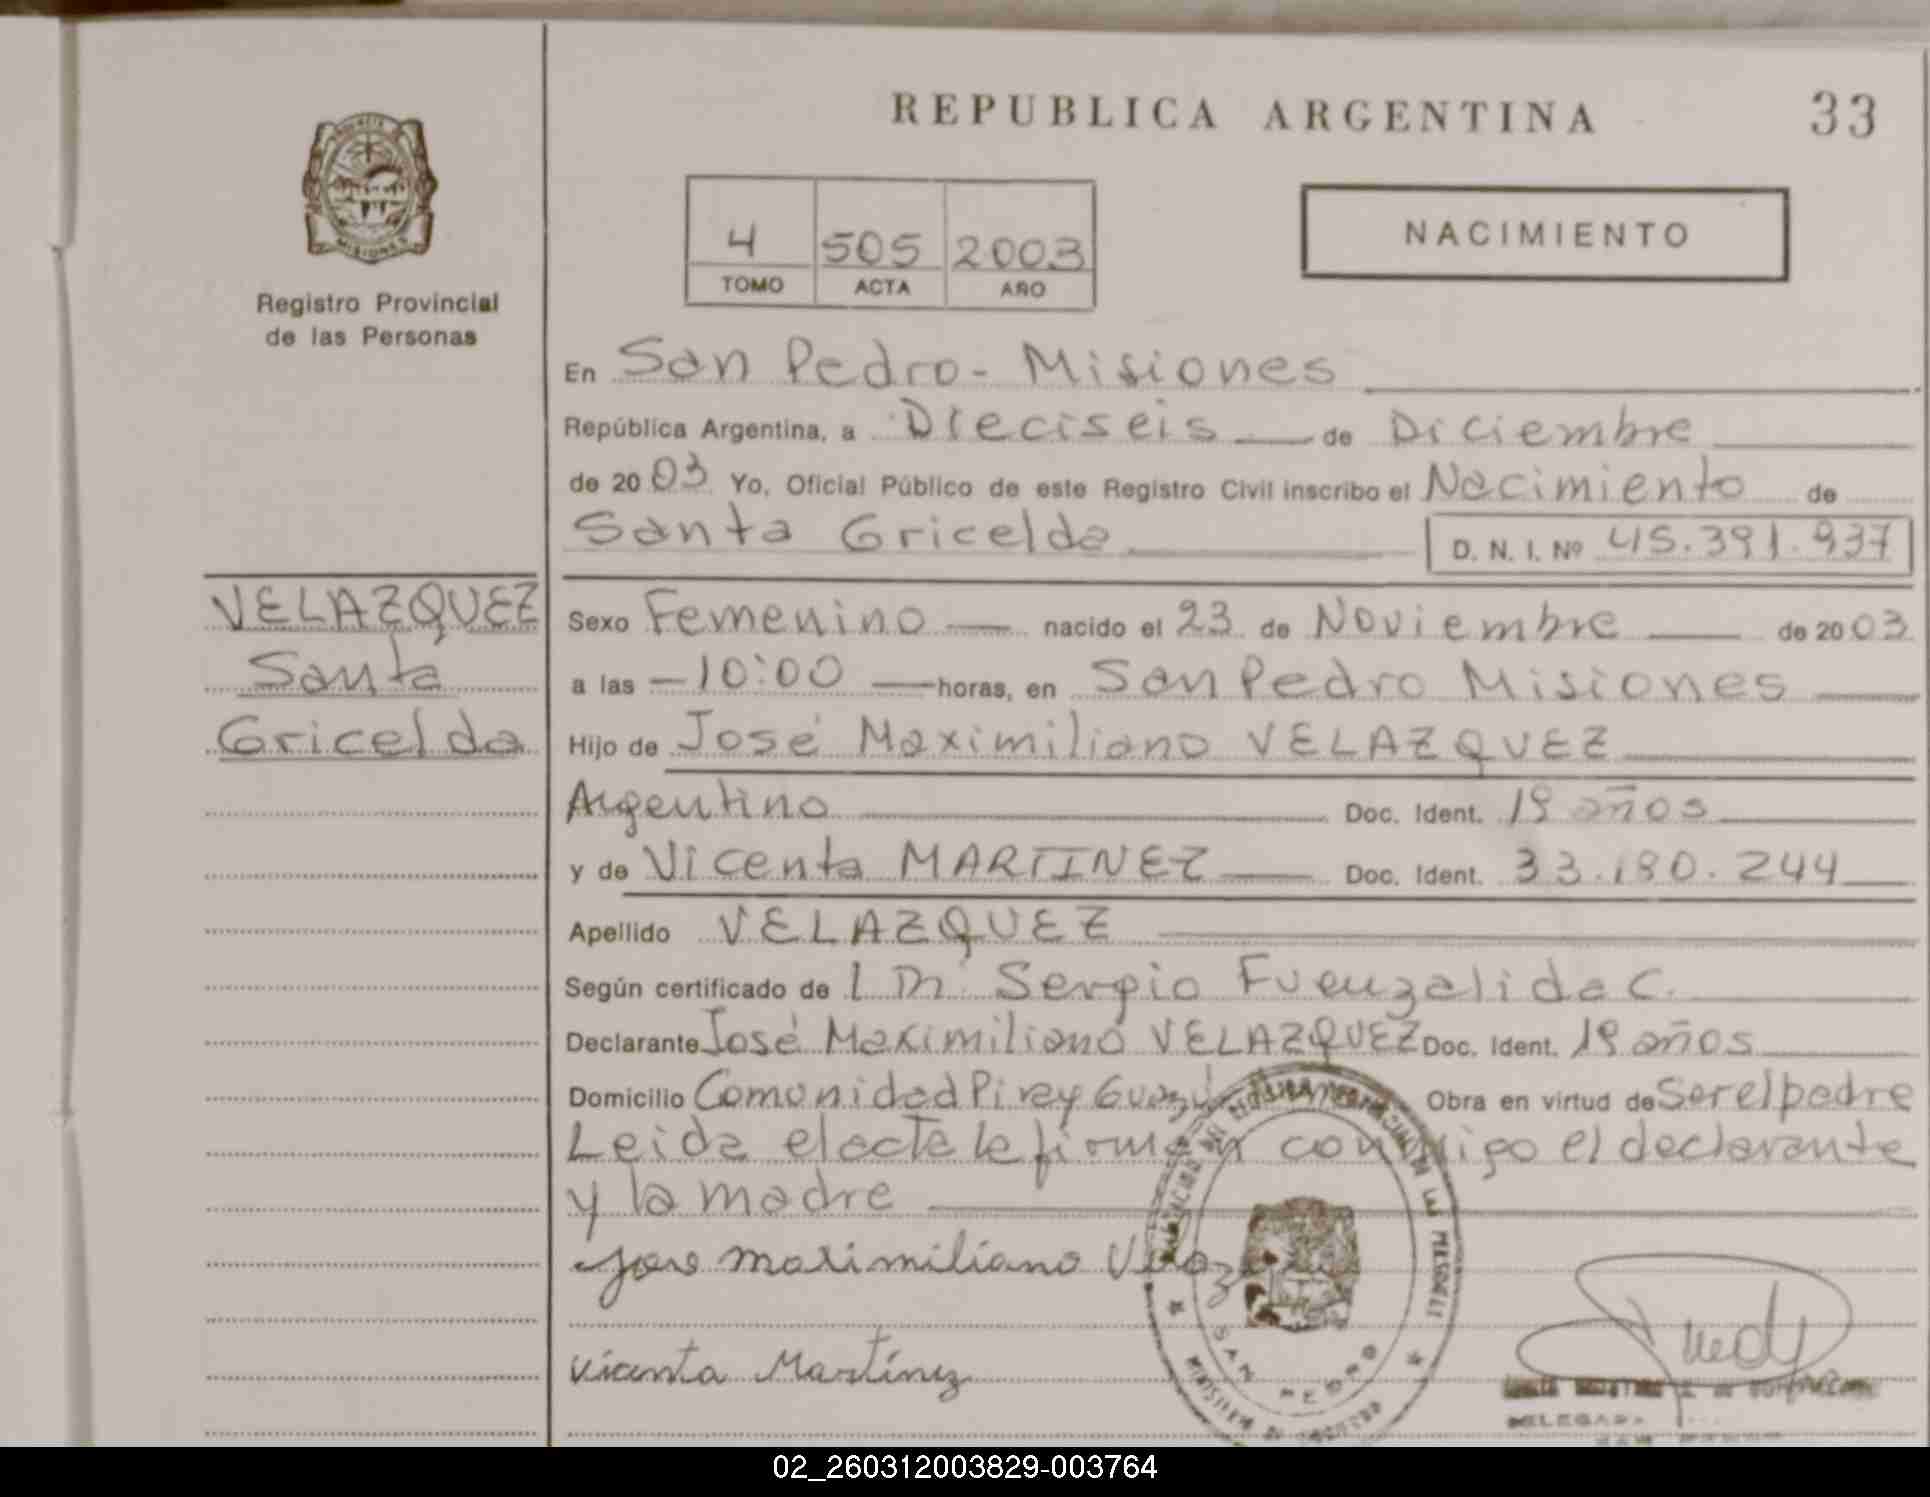 REPUBLICA ARGENTINA
33
4 505 2003
TOMO ACTA AÑO
NACIMIENTO
MISIONES
Registro Provincial
de las Personas
En San Pedro - Misiones
República Argentina, a Dieciseis de Diciembre
de 2003 Yo, Oficial Público de este Registro Civil inscribo el Nacimiento de
Santa Gricelda
D. N. I. Nº 45.391.937
VELAZQUEZ
Santa
Gricelda
Sexo Femenino nacido el 23 de Noviembre de 2003
a las 10:00 horas, en San Pedro Misiones
Hijo de José Maximiliano VELAZQUEZ
Argentino Doc. Ident. 19 años
y de Vicenta MARTINEZ Doc. Ident. 33.180.244
Apellido VELAZQUEZ
Según certificado de Sergio Fuenzalida C.
Declarante José Maximiliano VELAZQUEZ Doc. Ident. 19 años
Domicilio Comunidad Piray Guazú Obra en virtud de Ser el padre
Leida el acta la firman conmigo el declarante
y la madre
Jose maximiliano
Vicenta Martínez
SAN PEDRO
02_260312003829-003764